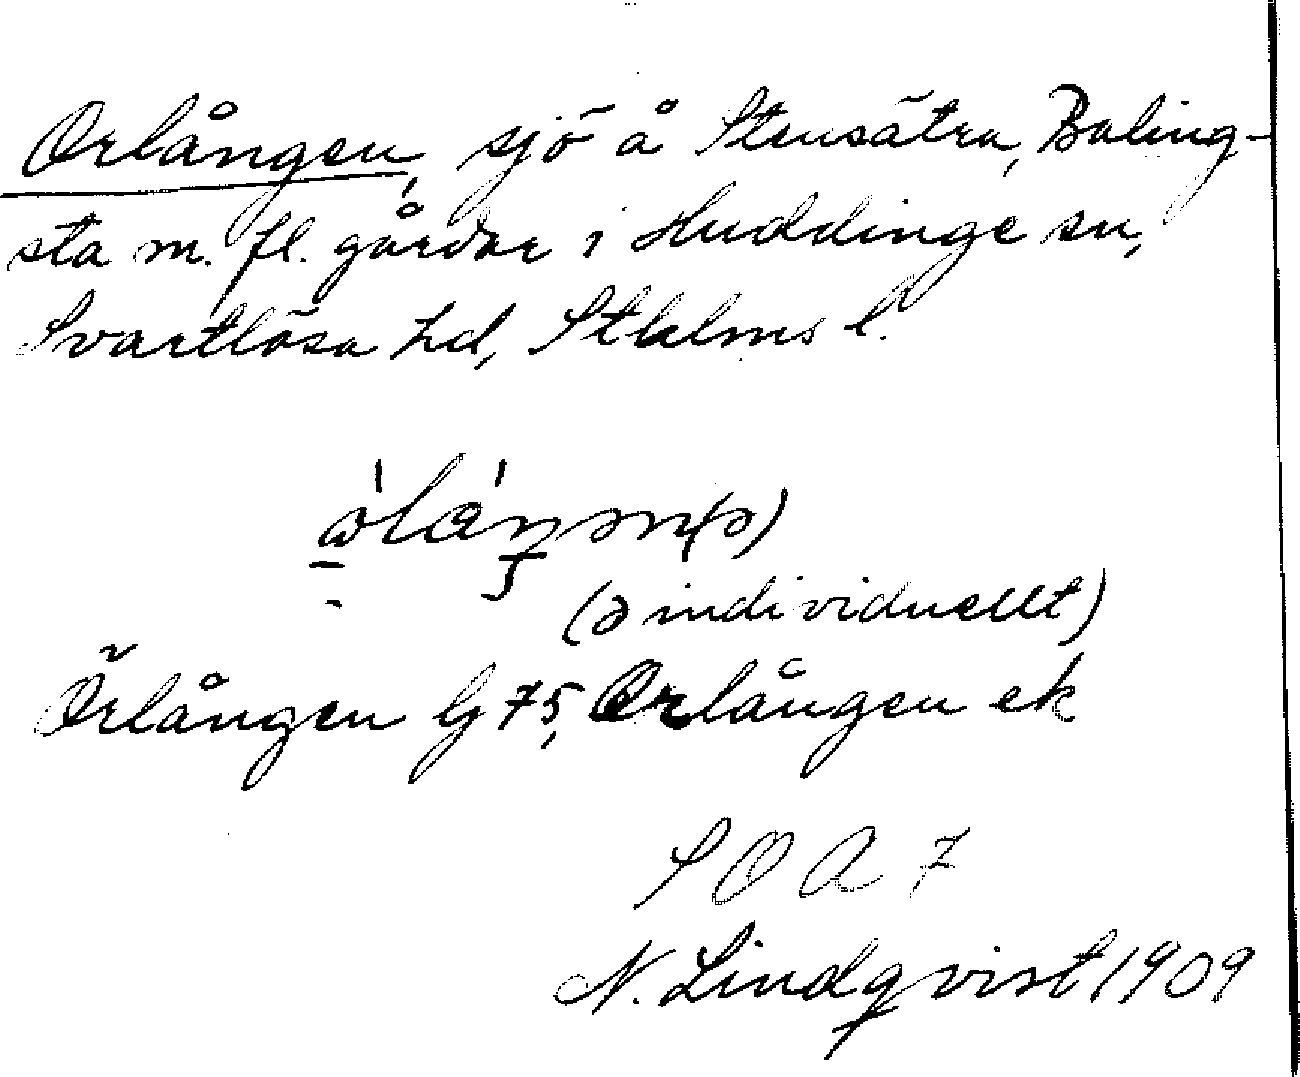 Orlången, sjö å Stensätra, Baling-
sta m. fl. gårdar i Huddinge sn,
Svartlösa hd, Sthlms l.
(ə individuellt)
Örlången G 75, Orlången ek
S O A 7
N. Lindqvist 1909